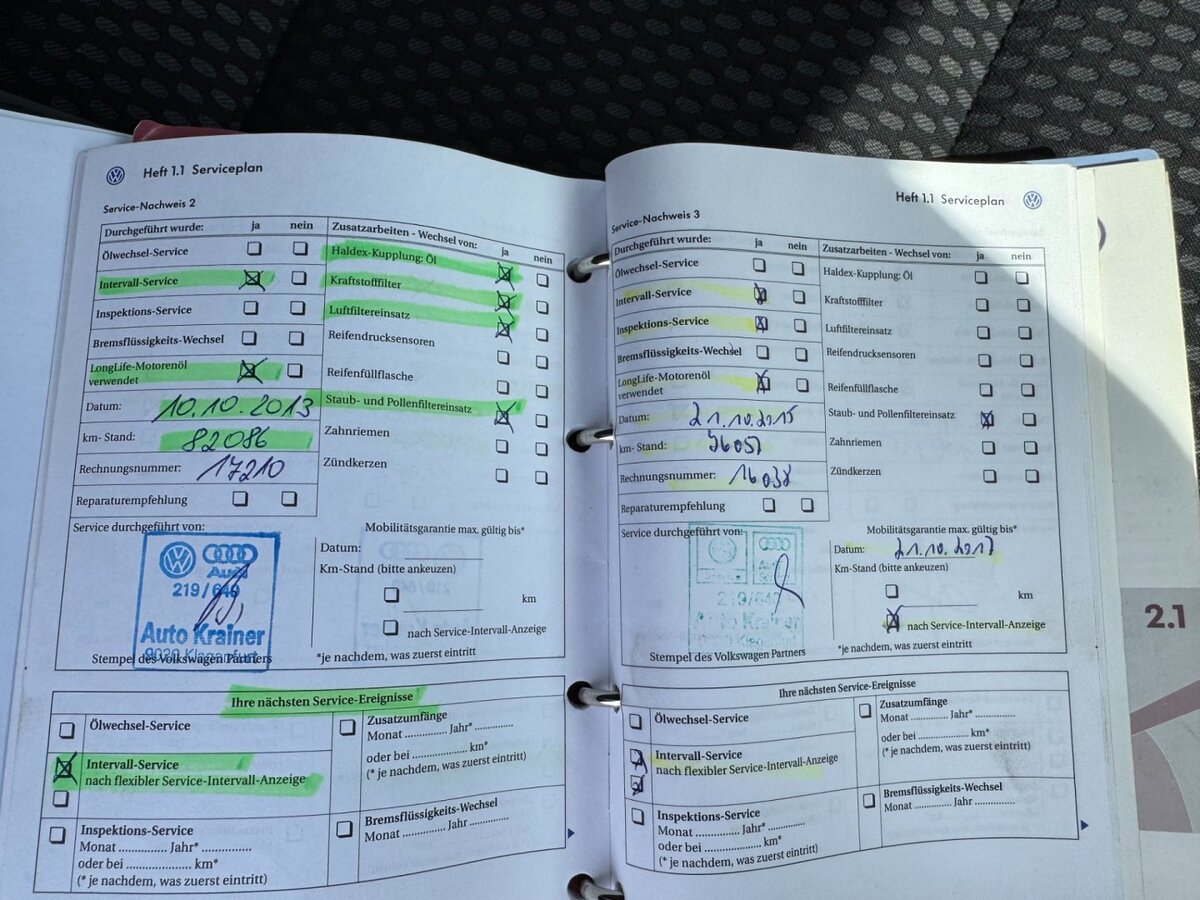 Heft 1.1 Serviceplan
Service-Nachweis 2
Durchgeführt wurde: ja nein
Ölwechsel-Service
Intervall-Service
Inspektions-Service
Bremsflüssigkeits-Wechsel
LongLife-Motorenöl
verwendet
Datum: 10.10.2013
km- Stand: 82086
Rechnungsnummer: 17210
Reparaturempfehlung
Zusatzarbeiten - Wechsel von: ja nein
Haldex-Kupplung: Öl
Kraftstofffilter
Luftfiltereinsatz
Reifendrucksensoren
Reifenfüllflasche
Staub- und Pollenfiltereinsatz
Zahnriemen
Zündkerzen
Service durchgeführt von:
Audi
219/640
Auto Krainer
9020 Klagenfurt
Stempel des Volkswagen Partners
Mobilitätsgarantie max. gültig bis*
Datum:
Km-Stand (bitte ankeuzen)
km
nach Service-Intervall-Anzeige
*je nachdem, was zuerst eintritt
Ihre nächsten Service-Ereignisse
Ölwechsel-Service
Intervall-Service
nach flexibler Service-Intervall-Anzeige
Inspektions-Service
Monat ............... Jahr* ...............
oder bei .................... km*
(* je nachdem, was zuerst eintritt)
Zusatzumfänge
Monat ............. Jahr* .............
oder bei .................... km*
(* je nachdem, was zuerst eintritt)
Bremsflüssigkeits-Wechsel
Monat ............. Jahr .............
Heft 1.1 Serviceplan
Service-Nachweis 3
Durchgeführt wurde: ja nein
Ölwechsel-Service
Intervall-Service
Inspektions-Service
Bremsflüssigkeits-Wechsel
LongLife-Motorenöl
verwendet
Datum: 21.10.2015
km- Stand: 96057
Rechnungsnummer: 16038
Reparaturempfehlung
Zusatzarbeiten - Wechsel von: ja nein
Haldex-Kupplung: Öl
Kraftstofffilter
Luftfiltereinsatz
Reifendrucksensoren
Reifenfüllflasche
Staub- und Pollenfiltereinsatz
Zahnriemen
Zündkerzen
Service durchgeführt von:
Auto Krainer
Stempel des Volkswagen Partners
Mobilitätsgarantie max. gültig bis*
Datum: 21.10.2017
Km-Stand (bitte ankeuzen)
km
nach Service-Intervall-Anzeige
*je nachdem, was zuerst eintritt
Ihre nächsten Service-Ereignisse
Ölwechsel-Service
Intervall-Service
nach flexibler Service-Intervall-Anzeige
Inspektions-Service
Monat ............... Jahr* ...............
oder bei .................... km*
(* je nachdem, was zuerst eintritt)
Zusatzumfänge
Monat ............. Jahr* .............
oder bei .................... km*
(* je nachdem, was zuerst eintritt)
Bremsflüssigkeits-Wechsel
Monat ............. Jahr .............
2.1